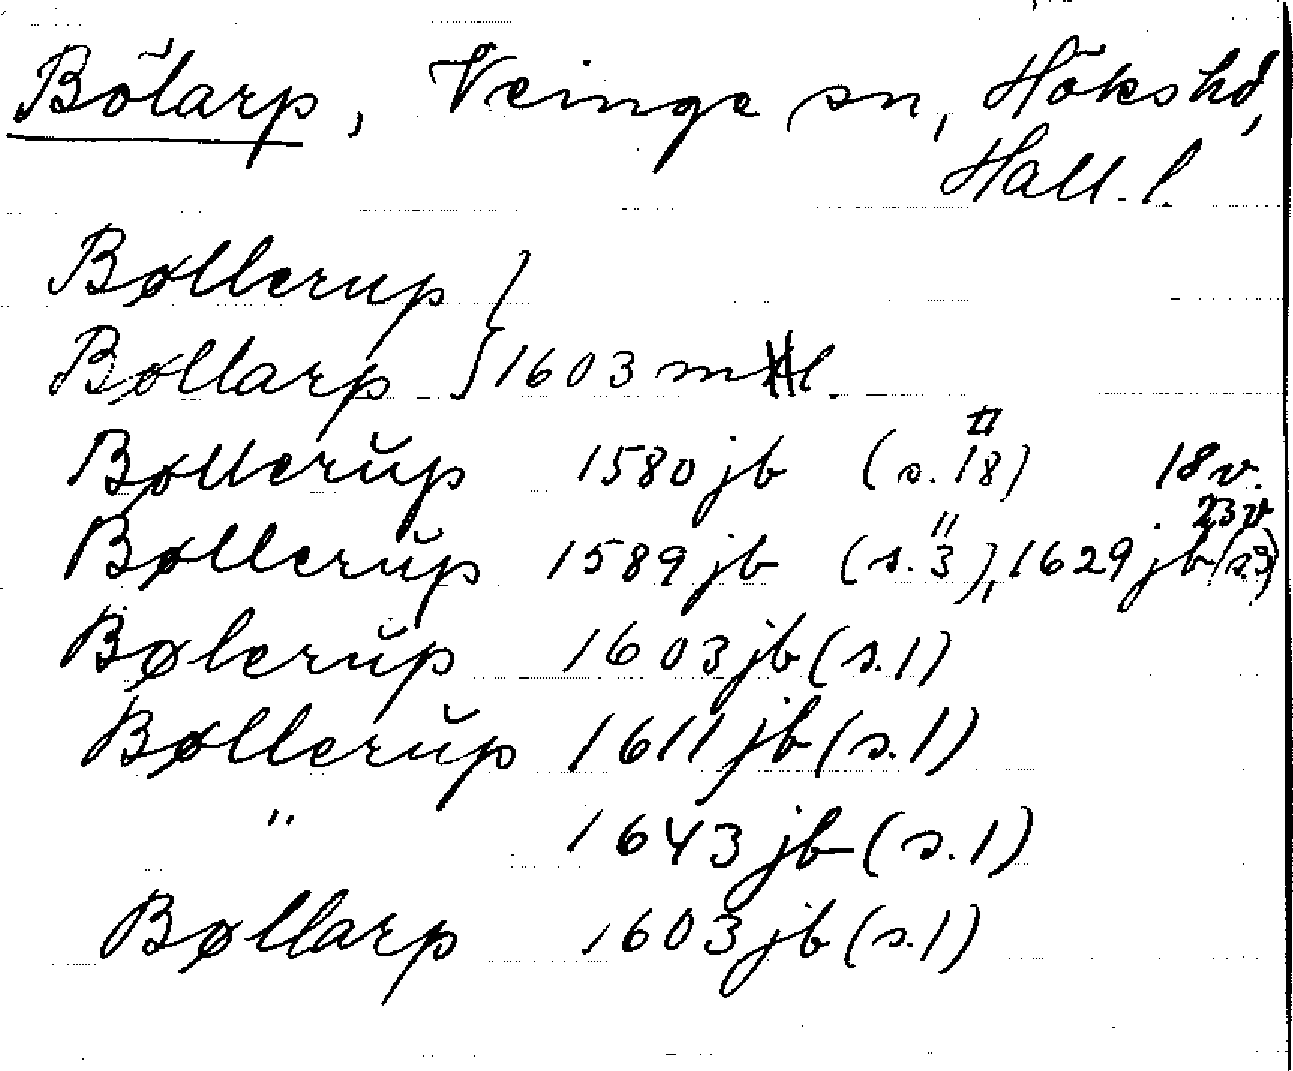 Bölarp, Veinge sn, Hökshd,
Hall. l.
Bøllerup }
Bøllarp } 1603 ml.
Bøllerŭp 1580 jb (s. 18) 18v.
23v
Bøllerŭp 1589 jb (s. 3), 1629 jb (s. 3)
Bølerŭp 1603 jb (s. 1)
Bøllerŭp 1611 jb (s. 1)
" 1643 jb (s. 1)
Bøllarp 1603 jb (s. 1)